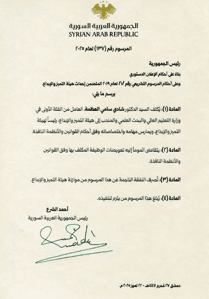 الجمهورية العربية السورية
SYRIAN ARAB REPUBLIC
المرسوم رقم (١٣٧) لعام ٢٠٢٥
رئيس الجمهورية
بناء على أحكام الإعلان الدستوري
وعلى أحكام المرسوم التشريعي رقم لعام المتضمن إحداث هيئة التميز والإبداع
يرسم ما يلي:
المادة (١): يكلف السيد الدكتور شادي سامي العظمة العامل من الفئة الأولى في
وزارة التعليم العالي والبحث العلمي والمنتدب إلى هيئة التميز والإبداع، رئيساً لهيئة
التميز والإبداع، ويمارس مهامه واختصاصاته وفق أحكام القوانين والأنظمة النافذة.
المادة (٢): يتقاضى المومأ إليه تعويضات الوظيفة المكلف بها وفق القوانين
والأنظمة النافذة.
المادة (٣): تصرف النفقة الناجمة عن هذا المرسوم من موازنة هيئة التميز والإبداع.
المادة (٤): يبلغ هذا المرسوم من يلزم لتنفيذه.
أحمد الشرع
رئيس الجمهورية العربية السورية
دمشق